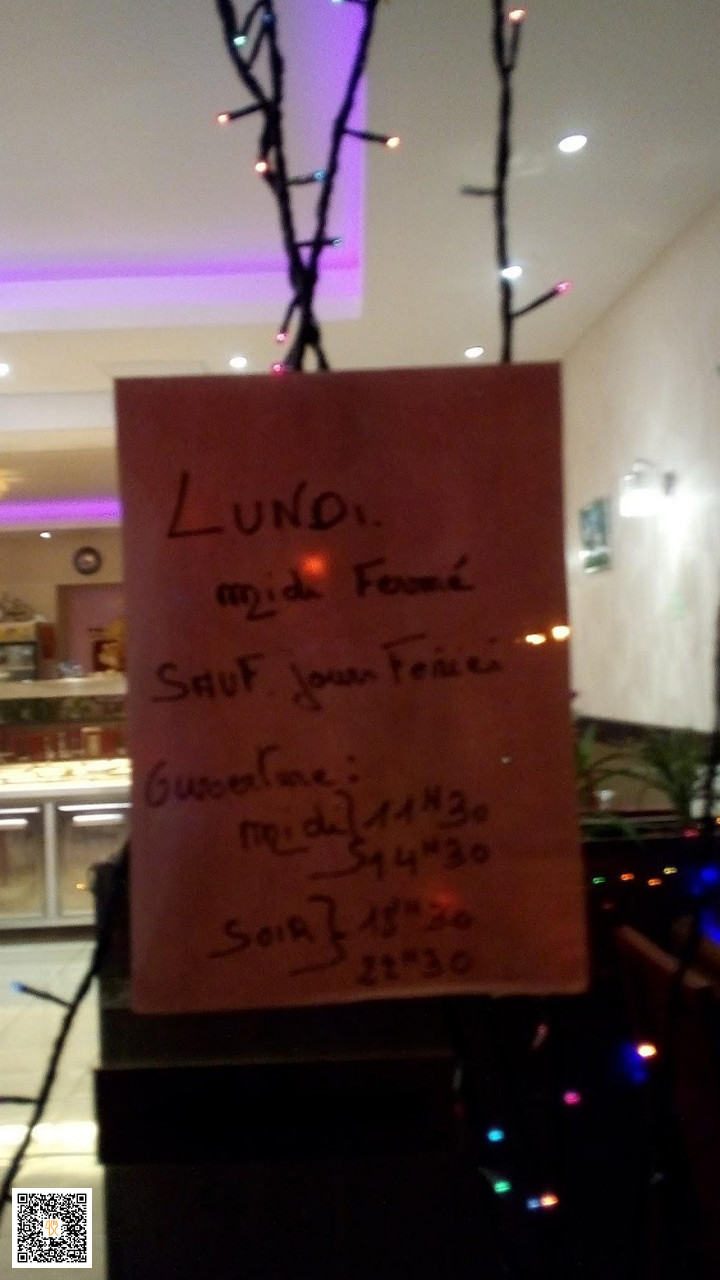 LUNDi.
midi Fermé
SAUF jours Feriés
Ouverture :
midi } 11H30
14H30
SOiR } 18H30
22H30